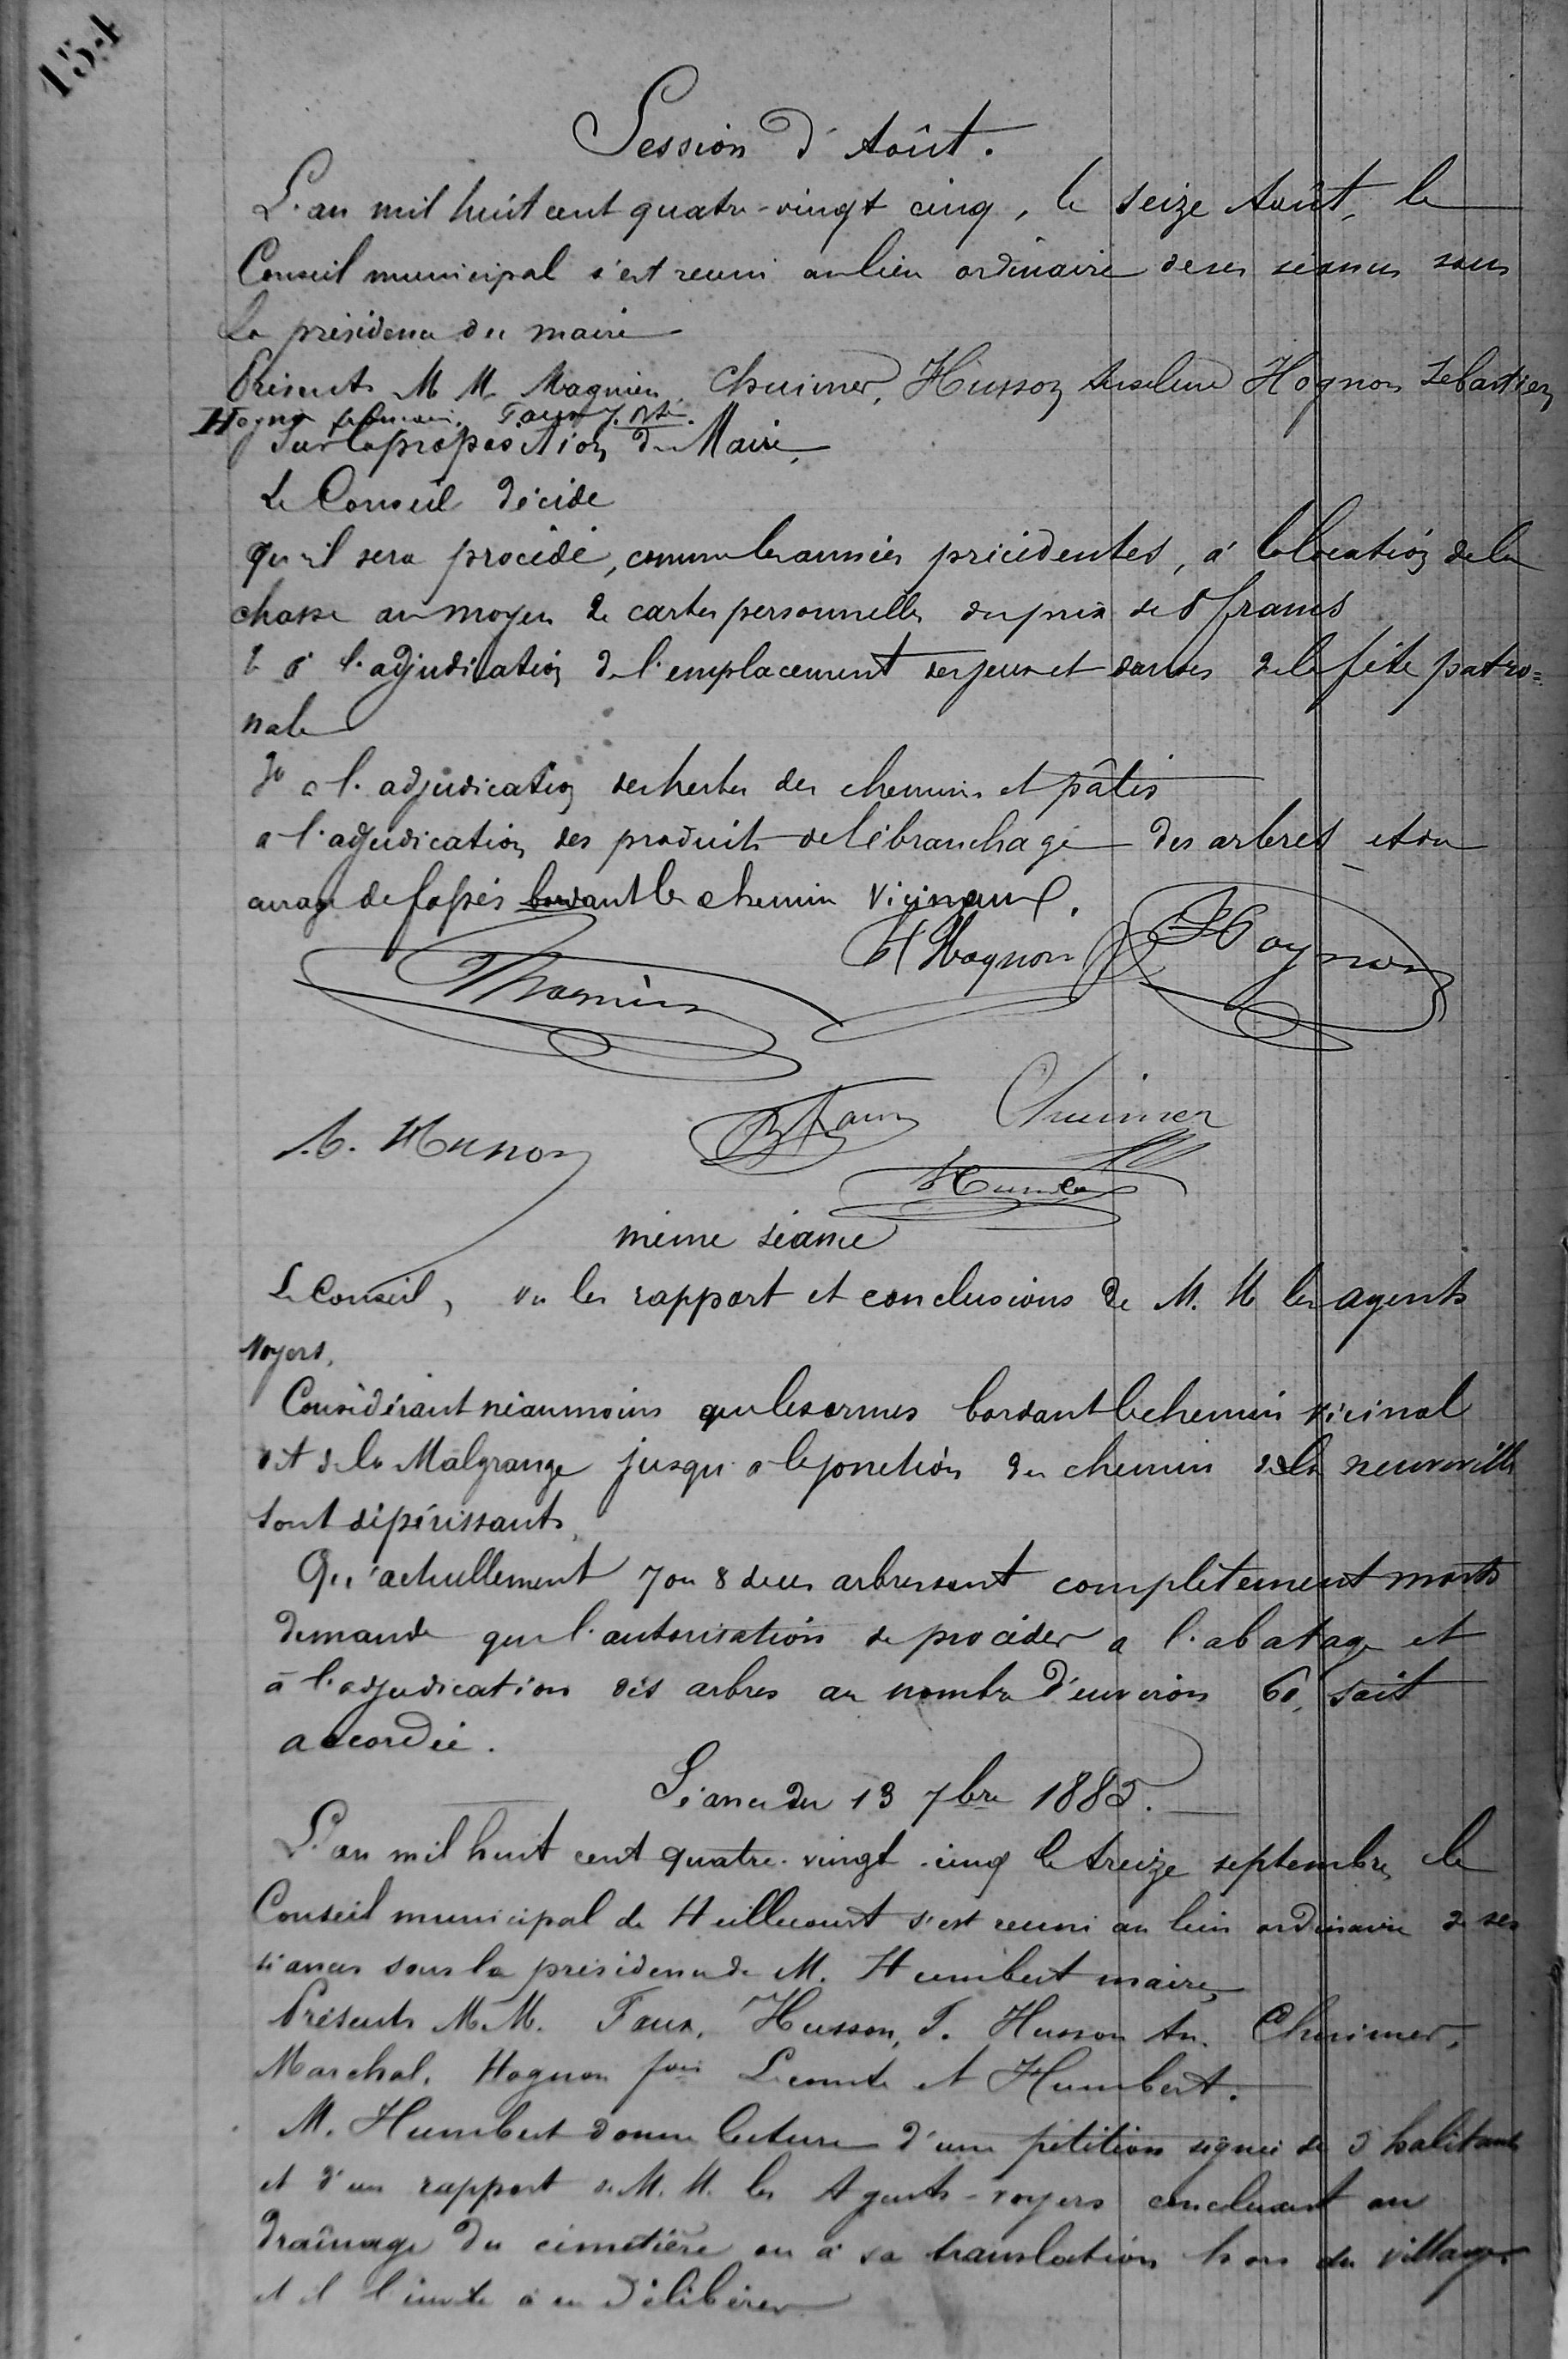 154
Session d'Août.
L'an mil huit cent quatre-vingt cinq, le seize Août, le
Conseil municipal s'est reuni au lieu ordinaire de ses séances sous
la présidence du maire
Présents M M Magnien, Chuimer, Husson Anselme Hognon Sebastien
Hognon Faux J. Bte.
Sur la proposition du Maire,
Le Conseil décide
qu'il sera procédé, comme les années précédentes, à la location de la
chasse au moyen de cartes personnelles du prix de 5 francs
2o à l'adjudication de l'emplacement des jeux et danses de la fête patro=
nale
3o a l'adjudication des herbes des chemins et pâtis
a l'adjudication des produits de l'ébranchage des arbres et du
curage de fossés bordant les chemin vicinaux.
Magnien H Hognon Hognon
A. Husson B Faux Chuimer
Humbert
même séance
Le Conseil, vu les rapport et conclusions de M. M les agents
voyers,
Considérant néanmoins que les ormes bordant le chemin vicinal
dit de la Malgrange jusqu'a la jonction du chemin de la neuveville
sont dépérissants,
Qu'actuellement 7 ou 8 de ces arbres sont complètement morts
demande que l'autorisation de procéder a l'abatage et
à l'adjudication des arbres au nombre d'environ 60, soit
accordée.
Séance du 13 7bre 1885.
L'an mil huit cent quatre-vingt-cinq le treize septembre, le
Conseil municipal de Heillecourt s'est reuni au lieu ordinaire de ses
séances sous la présidence de M. Humbert maire,
Présents M.M. Faux, Husson, J. Husson An. Chuimer,
Marchal, Hognon fois Lecomte et Humbert.
M. Humbert donne lecture d'une pétition signée de 5 habitants
et d'un rapport de M. M. les Agents-voyers concluant au
drainage du cimetière ou à sa translation hors du village
et il l'invite à en délibérer